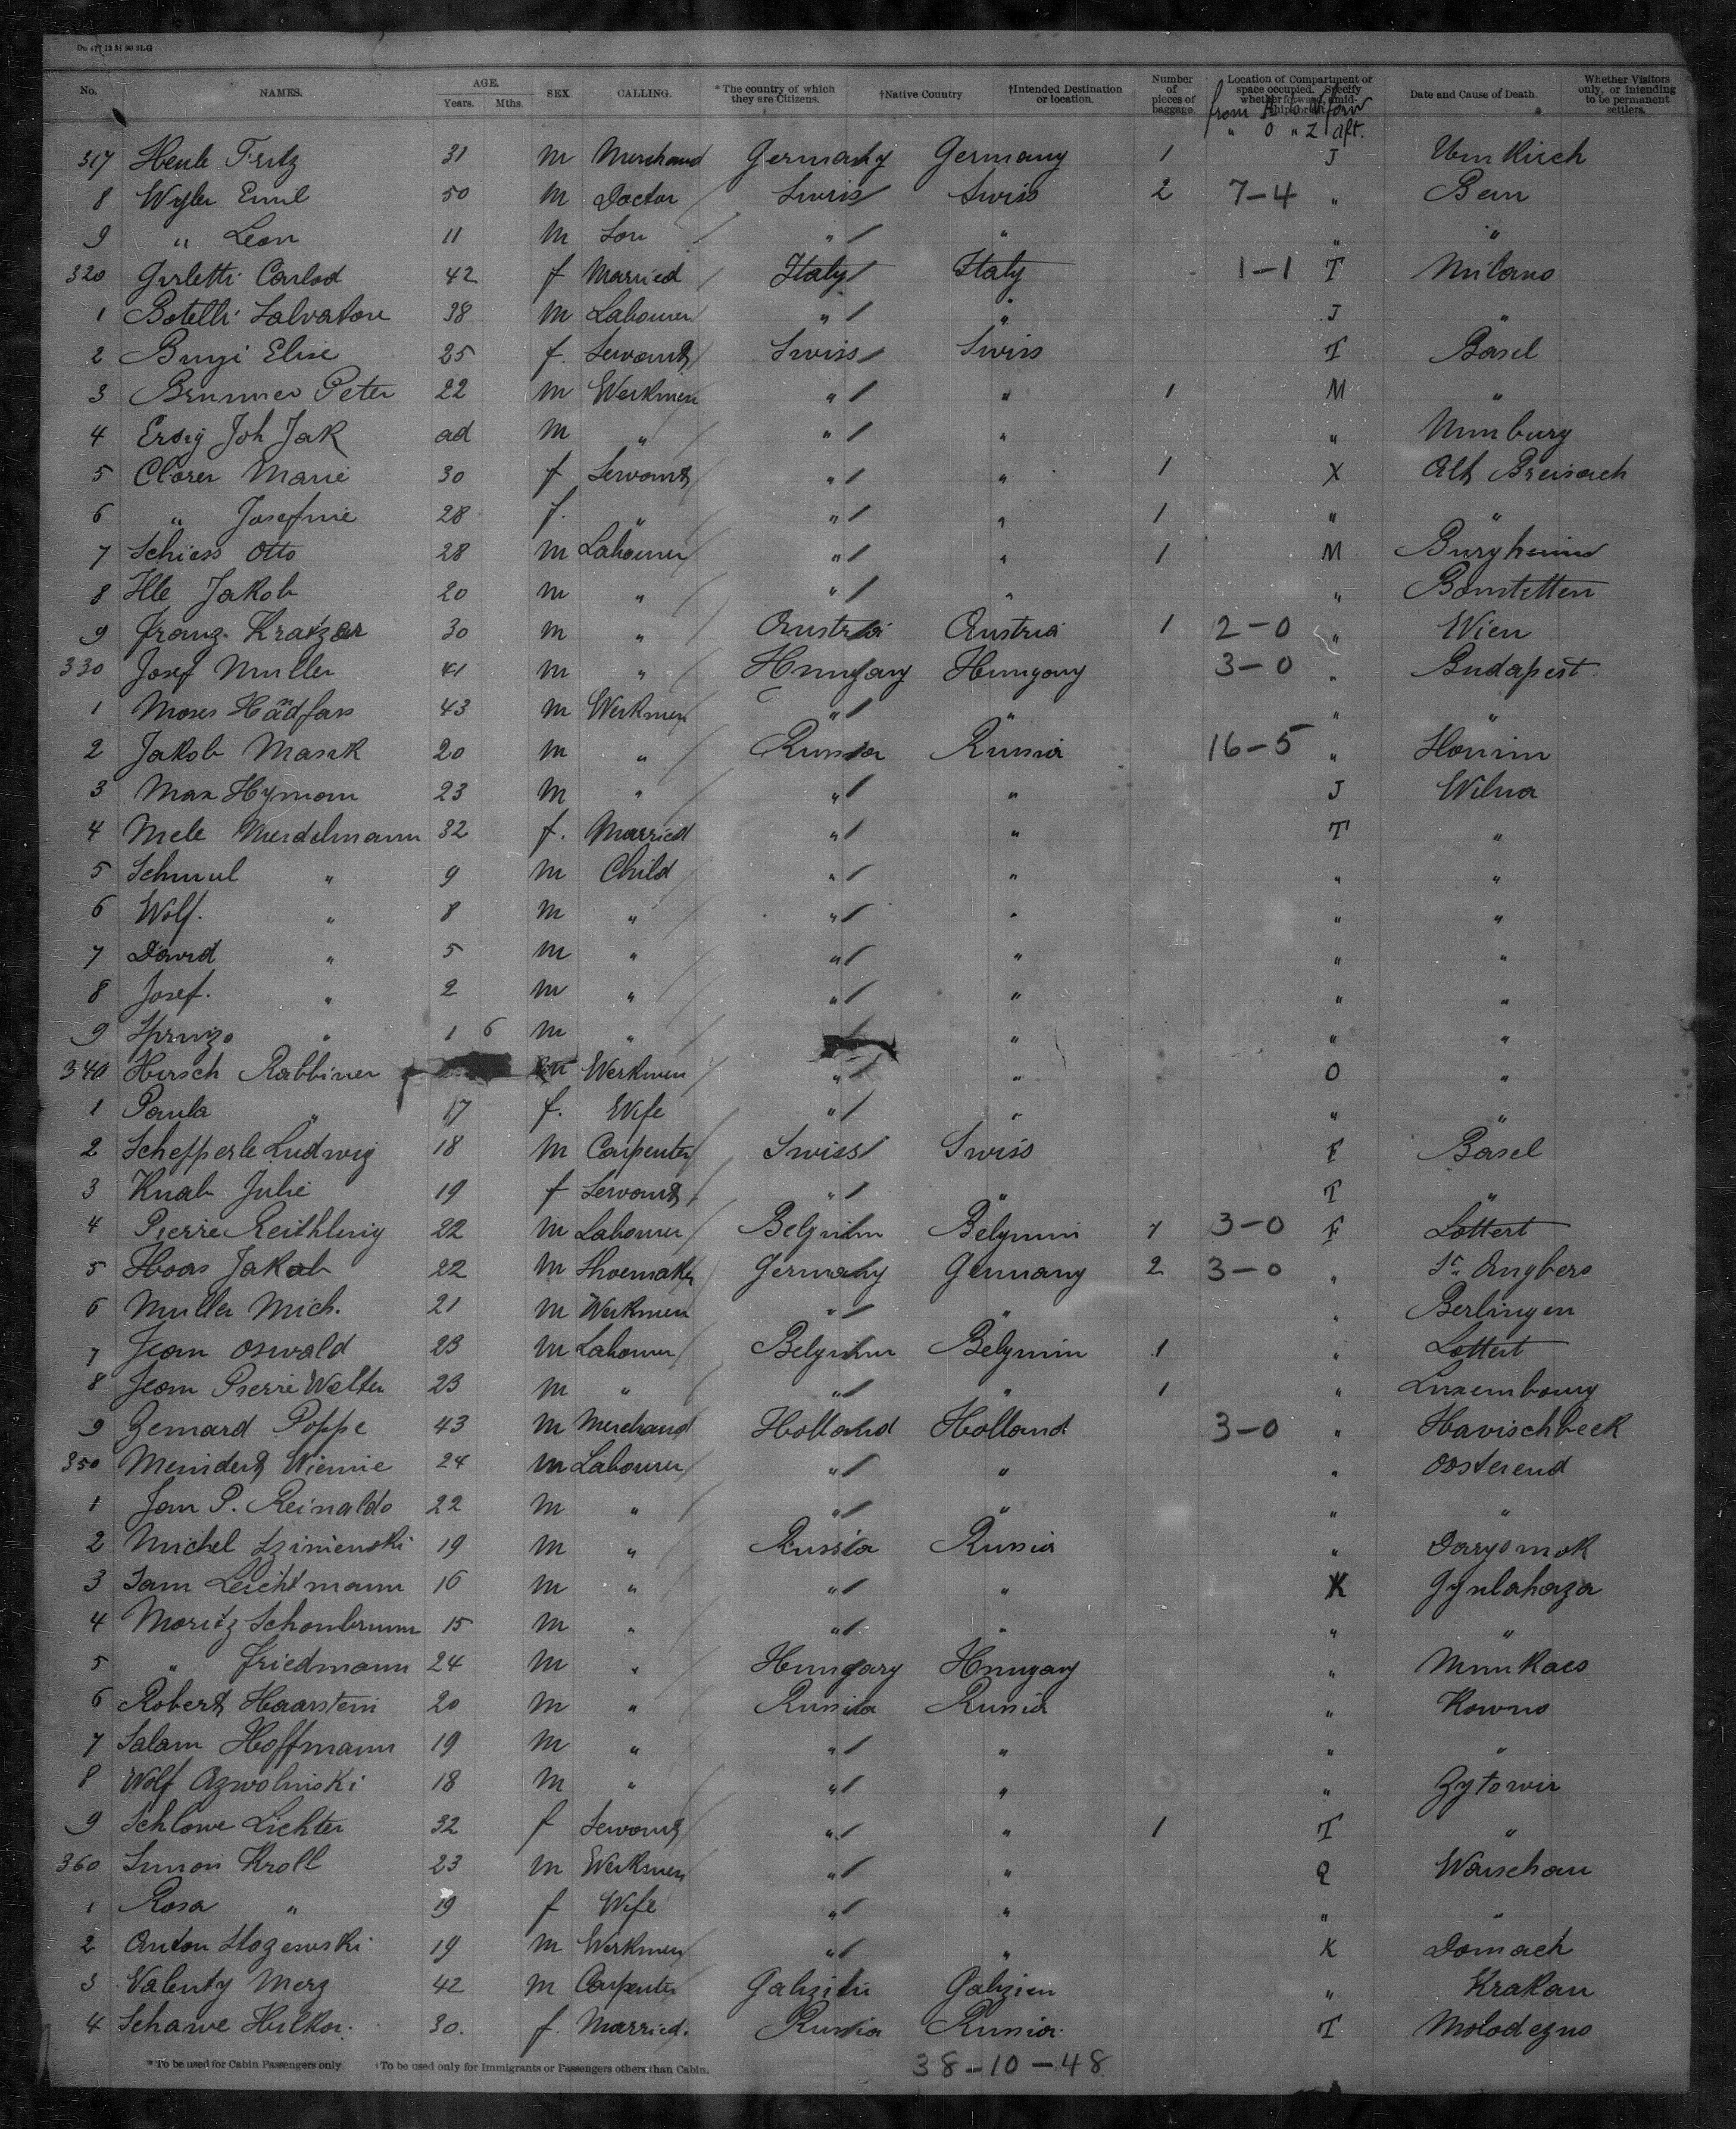 No. NAMES. AGE. Years. Mths. SEX CALLING. *The country of which they are Citizens. †Native Country †Intended Destination or location. Number of pieces of baggage. Location of Compartment or space occupied. Specify whether forward, amid- Date and Cause of Death. Whether Visitors only, or intending to be permanent settlers.
from A to N for
" O " Z aft.
317 Henle Fritz 31 m Merchand Germany Germany 1 J Umkirch
8 Wyler Emil 50 m Doctor Swiss Swiss 2 7-4 " Bern
9 " Leon 11 m Son " " " "
320 Girletti Carlod 42 f Married Italy Italy 1-1 T Milano
1 Botelli Salvatore 38 m Labourer " " J "
2 Bugi Elise 25 f. Servant Swiss Swiss T Basel
3 Brunner Peter 22 m Werkmen " " 1 M "
4 Joh Jak ad m " " " "
5 Clorer Marie 30 f Servant " " 1 X Alt Breisach
6 " Josefine 28 f. " " " 1 " "
7 Schiess Otto 28 m Labourer " " 1 M Burgheim
8 Ille Jakob 20 m " " " " Bomstetten
9 Franz Kratzer 30 m " Austria Austria 1 2-0 " Wien
330 Josef Muller 41 m " Hungary Hungary 3-0 " Budapest
1 Moses 43 m Werkmen " " " "
2 Jakob Masik 20 m " Russia Russia 16-5 "
3 Max Hyman 23 m " " " J Wilna
4 Mele Mendelmann 32 f. Married " " T "
5 Schmul " 9 m Child " " " "
6 Wolf. " 8 m " " " " "
7 David " 5 m " " " " "
8 Josef. " 2 m " " " " "
9 " 1 6 m " " " "
340 Hirsch Rabbiner Werkmen " " O "
1 Paula " 17 f. Wife " " " "
2 Schepperle Ludwig 18 m Carpenter Swiss Swiss F Basel
3 Knab Julie 19 f Servant " " T "
4 Pierre Reithling 22 m Labourer Belgium Belgium 1 3-0 F Lottert
5 Haas Jakob 22 m Shoemaker Germany Germany 2 3-0 " St. Engbero
6 Muller Mich. 21 m Werkmen " " " Berlingen
7 Jean Oswald 23 m Labourer Belgium Belgium 1 " Lottert
8 Jean Pierre Walter 23 m " " " 1 " Luxembourg
9 Gemard Poppe 43 m Merchand Holland Holland 3-0 " Havischbeek
350 Meindert Wiemie 24 m Labourer " " " Oosterend
1 Jan P. Reinaldo 22 m " " " " "
2 Michel Sziminski 19 m " Russia Russia "
3 Sam Leichtmann 16 m " " " K Gyulahaza
4 Moritz Schonbrunn 15 m " " " " "
5 " Friedmann 24 m " Hungary Hungary " Munkacs
6 Robert Haarstein 20 m " Russia Russia " Kowno
7 Salam Hoffmann 19 m " " " " "
8 Wolf Ozwolinski 18 m " " " " Zytowir
9 Schlowe Lichter 32 f Servant " " 1 T "
360 Simon Kroll 23 m Werkmen " " Q Warschau
1 Rosa " 19 f Wife " " " "
2 Anton Stozewski 19 m Werkmen " " K Domach
3 Valenty Merz 42 m Carpenter Galizien Galizien " Krakau
4 Schawe Hulkor. 30. f. Married. Russia Russia T Molodezno
*To be used for Cabin Passengers only †To be used only for Immigrants or Passengers others than Cabin. 38-10-48